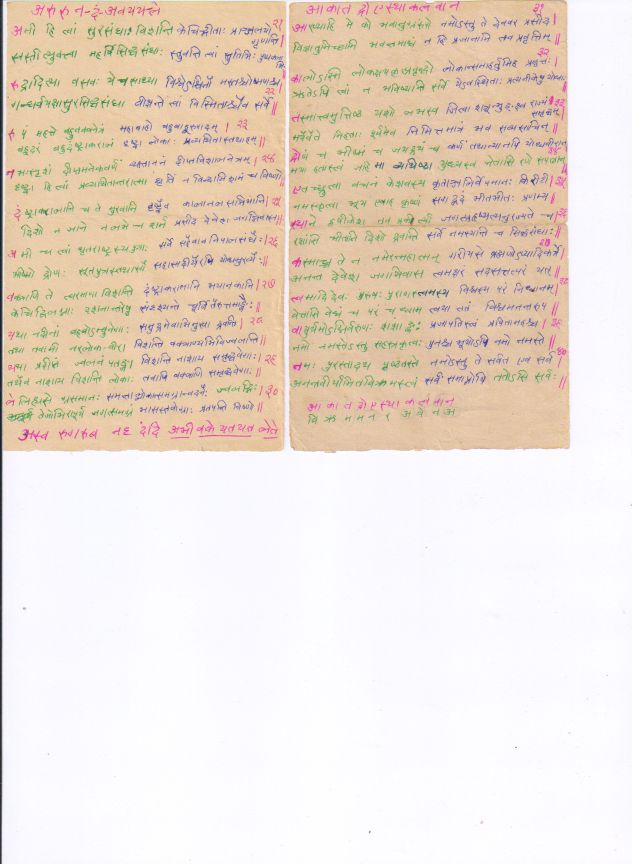 अ रु रु न - दं - अ व य य स्ते
अमी हि त्वां सुरसंघाः विशन्ति केचिद्भीताः प्राञ्जलयो गृणन्ति | २१
स्वस्तीत्युक्त्वा महर्षिसिद्धसंघाः स्तुवन्ति त्वां स्तुतिभिः पुष्कलाभिः
रुद्रादित्या वसवः ये च साध्या विश्वेऽश्विनौ मरुतश्चोष्मपाश्च | २२
गन्धर्वयक्षासुरसिद्धसंघा वीक्षन्ते त्वा विस्मिताश्चैव सर्वे ||
रूपं महत्ते बहुवक्त्रनेत्रं महाबाहो बहुबाहूरुपादम् | २३
बहूदरं बहुदंष्ट्राकरालं दृष्ट्वा लोकाः प्रव्यथितास्तथाहम् ||
नभःस्पृशं दीप्तमनेकवर्णं व्यात्ताननं दीप्तविशालनेत्रम् | २४
दृष्ट्वा हि त्वां प्रव्यथितान्तरात्मा धृतिं न विन्दामि शमं च विष्णो ||
दंष्ट्राकरालानि च ते मुखानि दृष्ट्वैव कालानलसन्निभानि | २५
दिशो न जाने न लभे च शर्म प्रसीद देवेश जगन्निवास ||
अमी च त्वां धृतराष्ट्रस्य पुत्राः सर्वे सहैवावनिपालसंघैः | २६
भीष्मो द्रोणः सूतपुत्रस्तथासौ सहास्मदीयैरपि योधमुख्यैः ||
वक्त्राणि ते त्वरमाणा विशन्ति दंष्ट्राकरालानि भयानकानि | २७
केचिद्विलग्नाः दशनान्तरेषु संदृश्यन्ते चूर्णितैरुत्तमाङ्गैः ||
यथा नदीनां बहवोऽम्बुवेगाः समुद्रमेवाभिमुखा द्रवन्ति | २८
तथा तवामी नरलोकवीरा विशन्ति वक्त्राण्यभिविज्वलन्ति ||
यथा प्रदीप्तं ज्वलनं पतङ्गा विशन्ति नाशाय समृद्धवेगाः | २९
तथैव नाशाय विशन्ति लोकाः तवापि वक्त्राणि समृद्धवेगाः ||
लेलिह्यसे ग्रसमानः समन्ताल्लोकान्समग्रान्वदनैः ज्वलद्भिः | ३०
तेजोभिरापूर्य जगत्समग्रं भासस्तवोग्राः प्रतपन्ति विष्णो ||
आख्याहि मे को भवानुग्ररूपो नमोऽस्तु ते देववर प्रसीद | ३१
विज्ञातुमिच्छामि भवन्तमाद्यं न हि प्रजानामि तव प्रवृत्तिम् ||
कालोऽस्मि लोकक्षयकृत्प्रवृद्धो लोकान्समाहर्तुमिह प्रवृत्तः | ३२
ऋतेऽपि त्वां न भविष्यन्ति सर्वे येऽवस्थिताः प्रत्यनीकेषु योधाः ||
तस्मात्त्वमुत्तिष्ठ यशो लभस्व जित्वा शत्रून्भुङ्क्ष्व राज्यं समृद्धम् | ३३
मयैवैते निहताः पूर्वमेव निमित्तमात्रं भव सव्यसाचिन् ||
द्रोणं च भीष्मं च जयद्रथं च कर्णं तथान्यानपि योधवीरान् | ३४
मया हतांस्त्वं जहि मा व्यथिष्ठा युध्यस्व जेतासि रणे सपत्नान् ||
एतच्छ्रुत्वा वचनं केशवस्य कृताञ्जलिर्वेपमानः किरीटी | ३५
नमस्कृत्वा भूय एवाह कृष्णं सगद्गदं भीतभीतः प्रणम्य ||
स्थाने हृषीकेश तव प्रकीर्त्या जगत्प्रहृष्यत्यनुरज्यते च | ३६
रक्षांसि भीतानि दिशो द्रवन्ति सर्वे नमस्यन्ति च सिद्धसंघाः ||
कस्माच्च ते न नमेरन्महात्मन् गरीयसे ब्रह्मणोऽप्यादिकर्त्रे | ३७
अनन्त देवेश जगन्निवास त्वमक्षरं सदसत्तत्परं यत् ||
त्वमादिदेवः पुरुषः पुराणस्त्वमस्य विश्वस्य परं निधानम् | ३८
वेत्तासि वेद्यं च परं च धाम त्वया ततं विश्वमनन्तरूप ||
वायुर्यमोऽग्निर्वरुणः शशाङ्कः प्रजापतिस्त्वं प्रपितामहश्च | ३९
नमो नमस्तेऽस्तु सहस्रकृत्वः पुनश्च भूयोऽपि नमो नमस्ते ||
नमः पुरस्तादथ पृष्ठतस्ते नमोऽस्तु ते सर्वत एव सर्व | ४०
अनन्तवीर्यामितविक्रमस्त्वं सर्वं समाप्नोषि ततोऽसि सर्वः ||